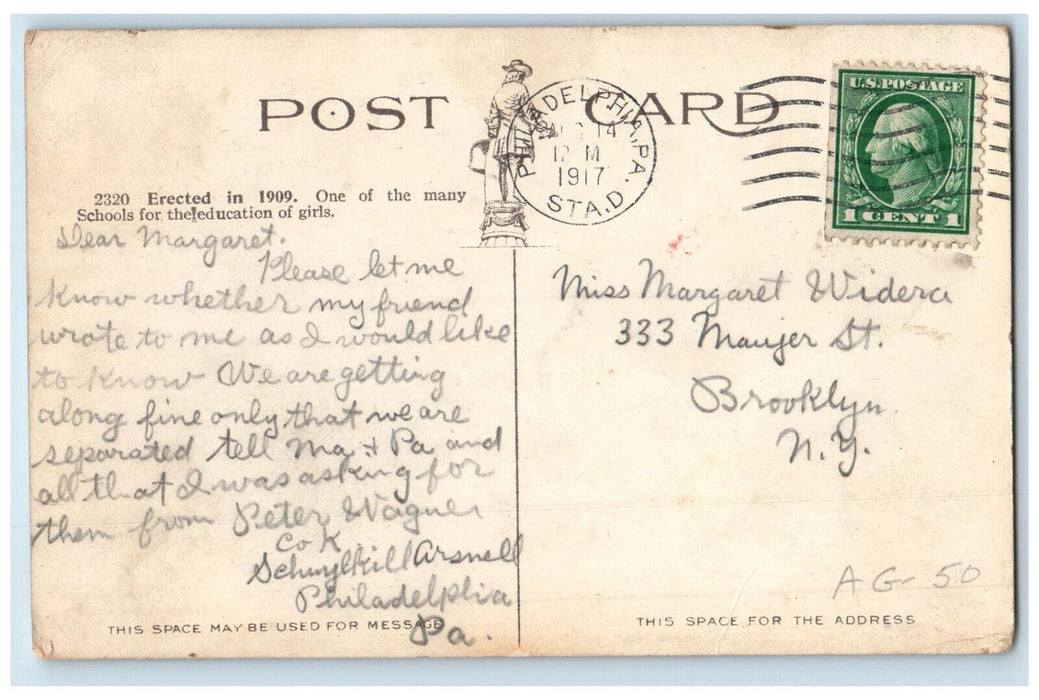 POST CARD
U.S. POSTAGE
1 CENT 1
PHILADELPHIA, PA.
14
M
1917
STA. D
2320 Erected in 1909. One of the many
Schools for the education of girls.
Dear Margaret.
Please let me
know whether my friend
wrote to me as I would like
to know We are getting
along fine only that we are
separated tell Ma + Pa and
all that I was asking for
them from Peter Wagner
Co K.
Schuylkill Arsnell
Philadelphia
Pa.
Miss Margaret Widera
333 Maujer St.
Brooklyn.
N.Y.
AG-50
THIS SPACE MAY BE USED FOR MESSAGE
THIS SPACE FOR THE ADDRESS